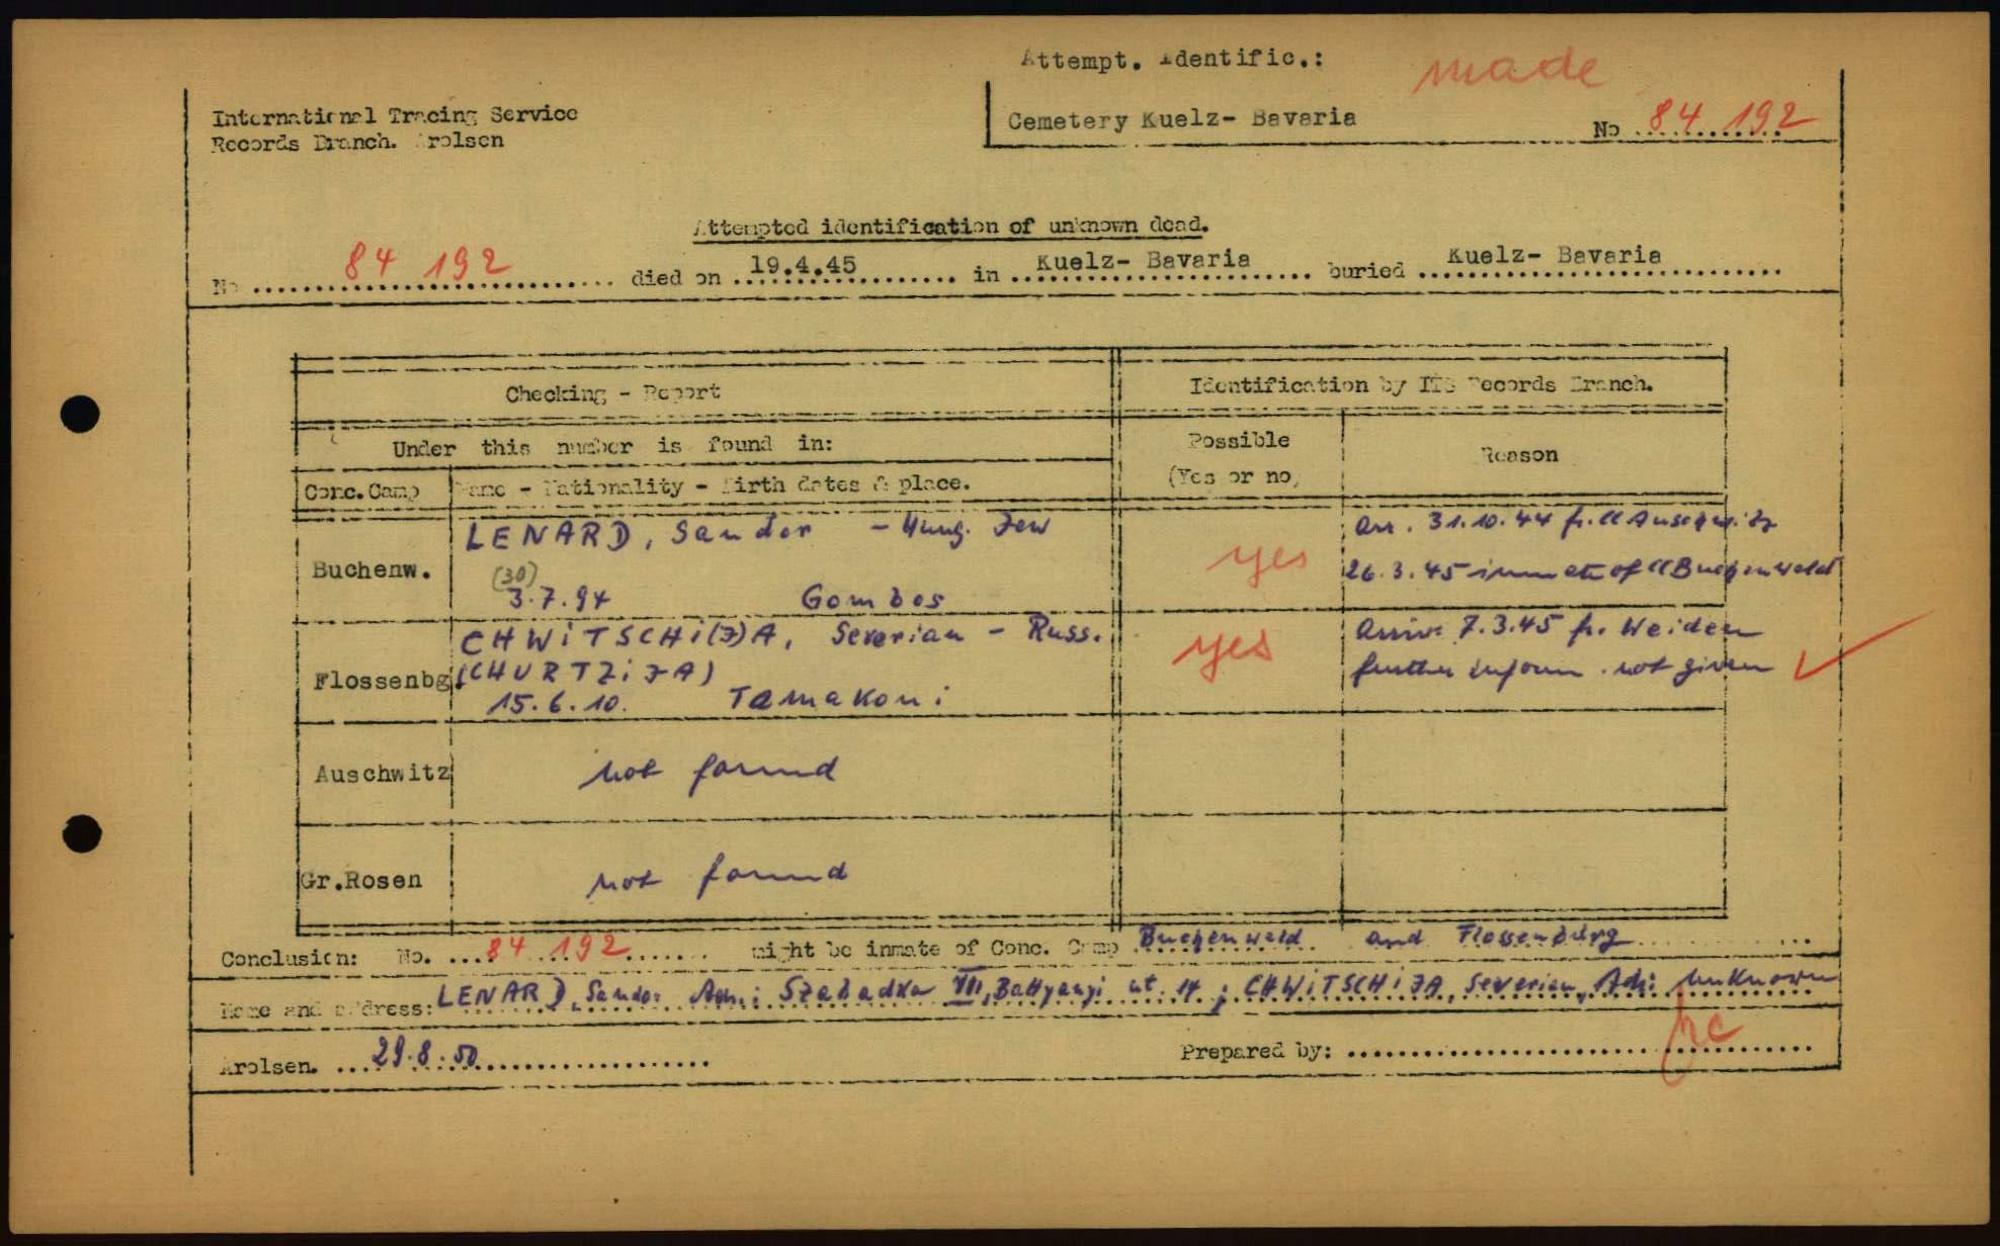 Attempt. Identific.: made
International Tracing Service
Records Branch. Arolsen
Cemetery Kuelz- Bavaria No 84 192
Attempted identification of unknown dead.
No 84 192 died on 19.4.45 in Kuelz- Bavaria buried Kuelz- Bavaria
Checking - Report
Identification by ITS Records Branch.
Under this number is found in:
Possible
(Yes or no)
Reason
Conc. Camp
Name - Nationality - Birth dates & place.
Buchenw.
LENARD, Sandor - Hung. Jew
(30)
3.7.94 Gombos
yes
Arr. 31.10.44 fr. CC Auschwitz
26.3.45 inmate of CC Buchenwald
Flossenbg.
CHWiTSCHi(J)A, Severian - Russ.
(CHURTZiJA)
15.6.10. Tamakoni
yes
Arriv: 7.3.45 fr. Weiden
further inform. not given
Auschwitz
not found
Gr.Rosen
not found
Conclusion: No. 84 192 might be inmate of Conc. Camp Buchenwald and Flossenbürg
Name and address: LENARD, Sandor Adr.: Szabadka VII, Battyanyi ut. 14; CHWiTSCHiJA, Severian, Adr: Unknown
Arolsen. 29.8.50
Prepared by: